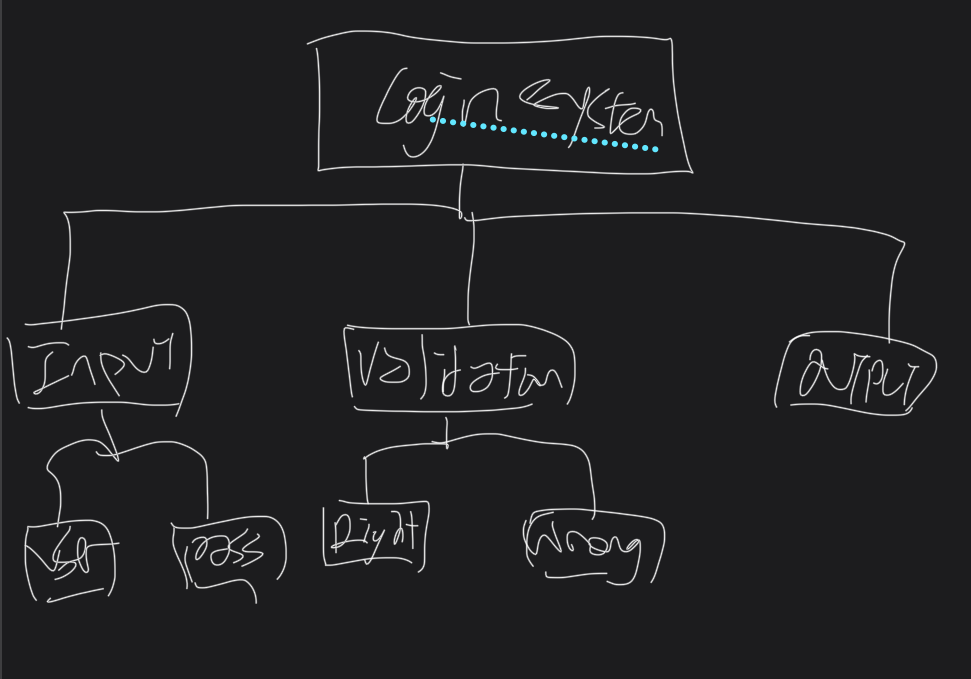 Login System
Input
Validation
OUTPUT
User
pass
Right
Wrong